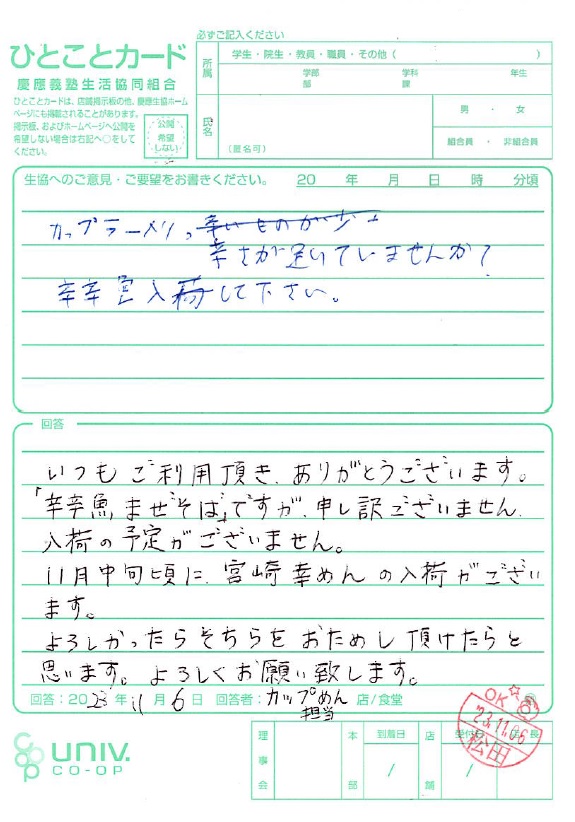 必ずご記入ください
ひとことカード
慶應義塾生活協同組合
ひとことカードは、店頭掲示板の他、慶應生協ホーム
ページにも掲載されることがあります。
掲示板、およびホームページへ公開を
希望しない場合は右記へ○をして
ください。
公開
希望
しない
所属
学生・院生・教員・職員・その他( )
学部 学科 年生
部 課
氏名
(匿名可)
男・女
組合員・非組合員
生協へのご意見・ご要望をお書きください。 20 年 月 日 時 分頃
カップラーメンっ 辛いものが少
辛さが足りていませんか?
辛辛 入荷して下さい。
回答
いつもご利用頂き、ありがとうございます。
「辛辛魚まぜそば」ですが、申し訳ございません、
入荷の予定がございません。
11月中旬頃に、宮崎辛めんの入荷がござい
ます。
よろしかったらそちらをおためし頂けたらと
思います。よろしくお願い致します。
回答:2023年11月6日 回答者:カップめん 店/食堂
担当
UNIV.
CO-OP
理事会
本部
到着日
/
店舗
受付日
/
店長
OK☆
23.11.06
松田